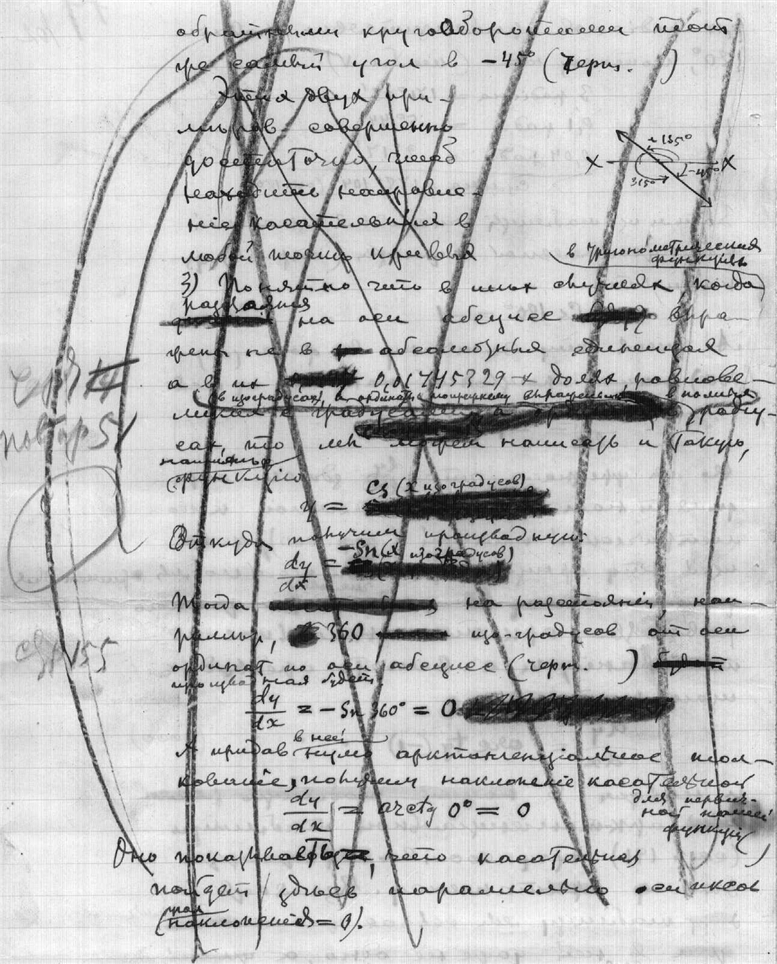 обратными круговоротами тот
же самый угол в -45° (Черт. )
Этих двух при-
меров совершенно
достаточно, чтоб
находить направле-
ніе касательныя в
любой точке кривыя
~135°
X X
-45°
315°
в тригонометрическия
функціи
3) Понятно что в иных случаях, когда
разстояния
на оси абсцисс выра-
жены не в абсолютныя единицах
а в их 0,01745329-х долях, равнове-
ликих с градусами, а радиу-
сах, то мы можем написать и такую,
начальную
функцию
y = Cs (x изоградусов)
Откуда получим производную:
dy/dx = -Sn (x изоградусов)
Тогда на разстояніи, нап-
ример, 360 изо-градусов от оси
ординат по оси абсцисс (черт. )
производная будет
dy/dx = -Sn 360° = 0
А придав в ней нулю арктангенціальное тол-
кованіе, получим наклоненіе касательной
dy/dx = arctg 0° = 0
для первич-
ной нашей
функціи
Оно показывает, что касательная
пойдет здесь параллельно оси иксов
(наклоненія = 0).
стр
повтор 51
стр 155